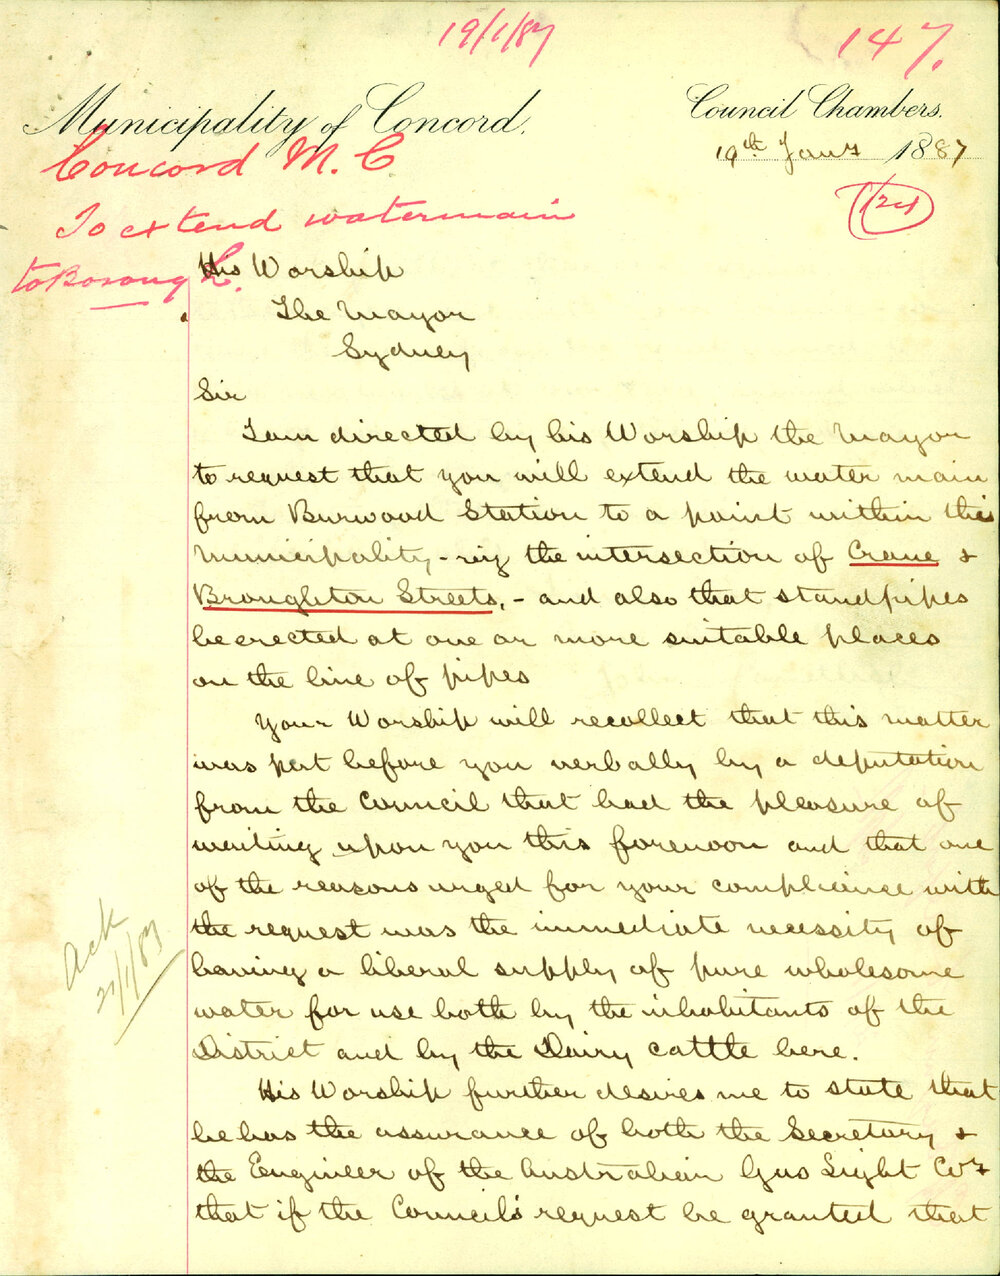 19/1/87
147.
Municipality of Concord.
Council Chambers.
19th Jany 1887
Concord M. C.
(124)
To extend watermain
to Borough L.
His Worship
The Mayor
Sydney
Sir
I am directed by his Worship the Mayor
to request that you will extend the water main
from Burwood Station to a point within this
Municipality - viz the intersection of Crane &
Broughton Streets, - and also that standpipes
be erected at one or more suitable places
on the line of pipes
Your Worship will recollect that this matter
was put before you verbally by a deputation
from the Council that had the pleasure of
waiting upon you this forenoon and that one
of the reasons urged for your compliance with
the request was the immediate necessity of
having a liberal supply of pure wholesome
water for use both by the inhabitants of the
District and by the Dairy cattle here.
Ack
21/1/87
His Worship further desires me to state that
he has the assurance of both the Secretary &
the Engineer of the Australian Gas Light Coy
that if the Council's request be granted that